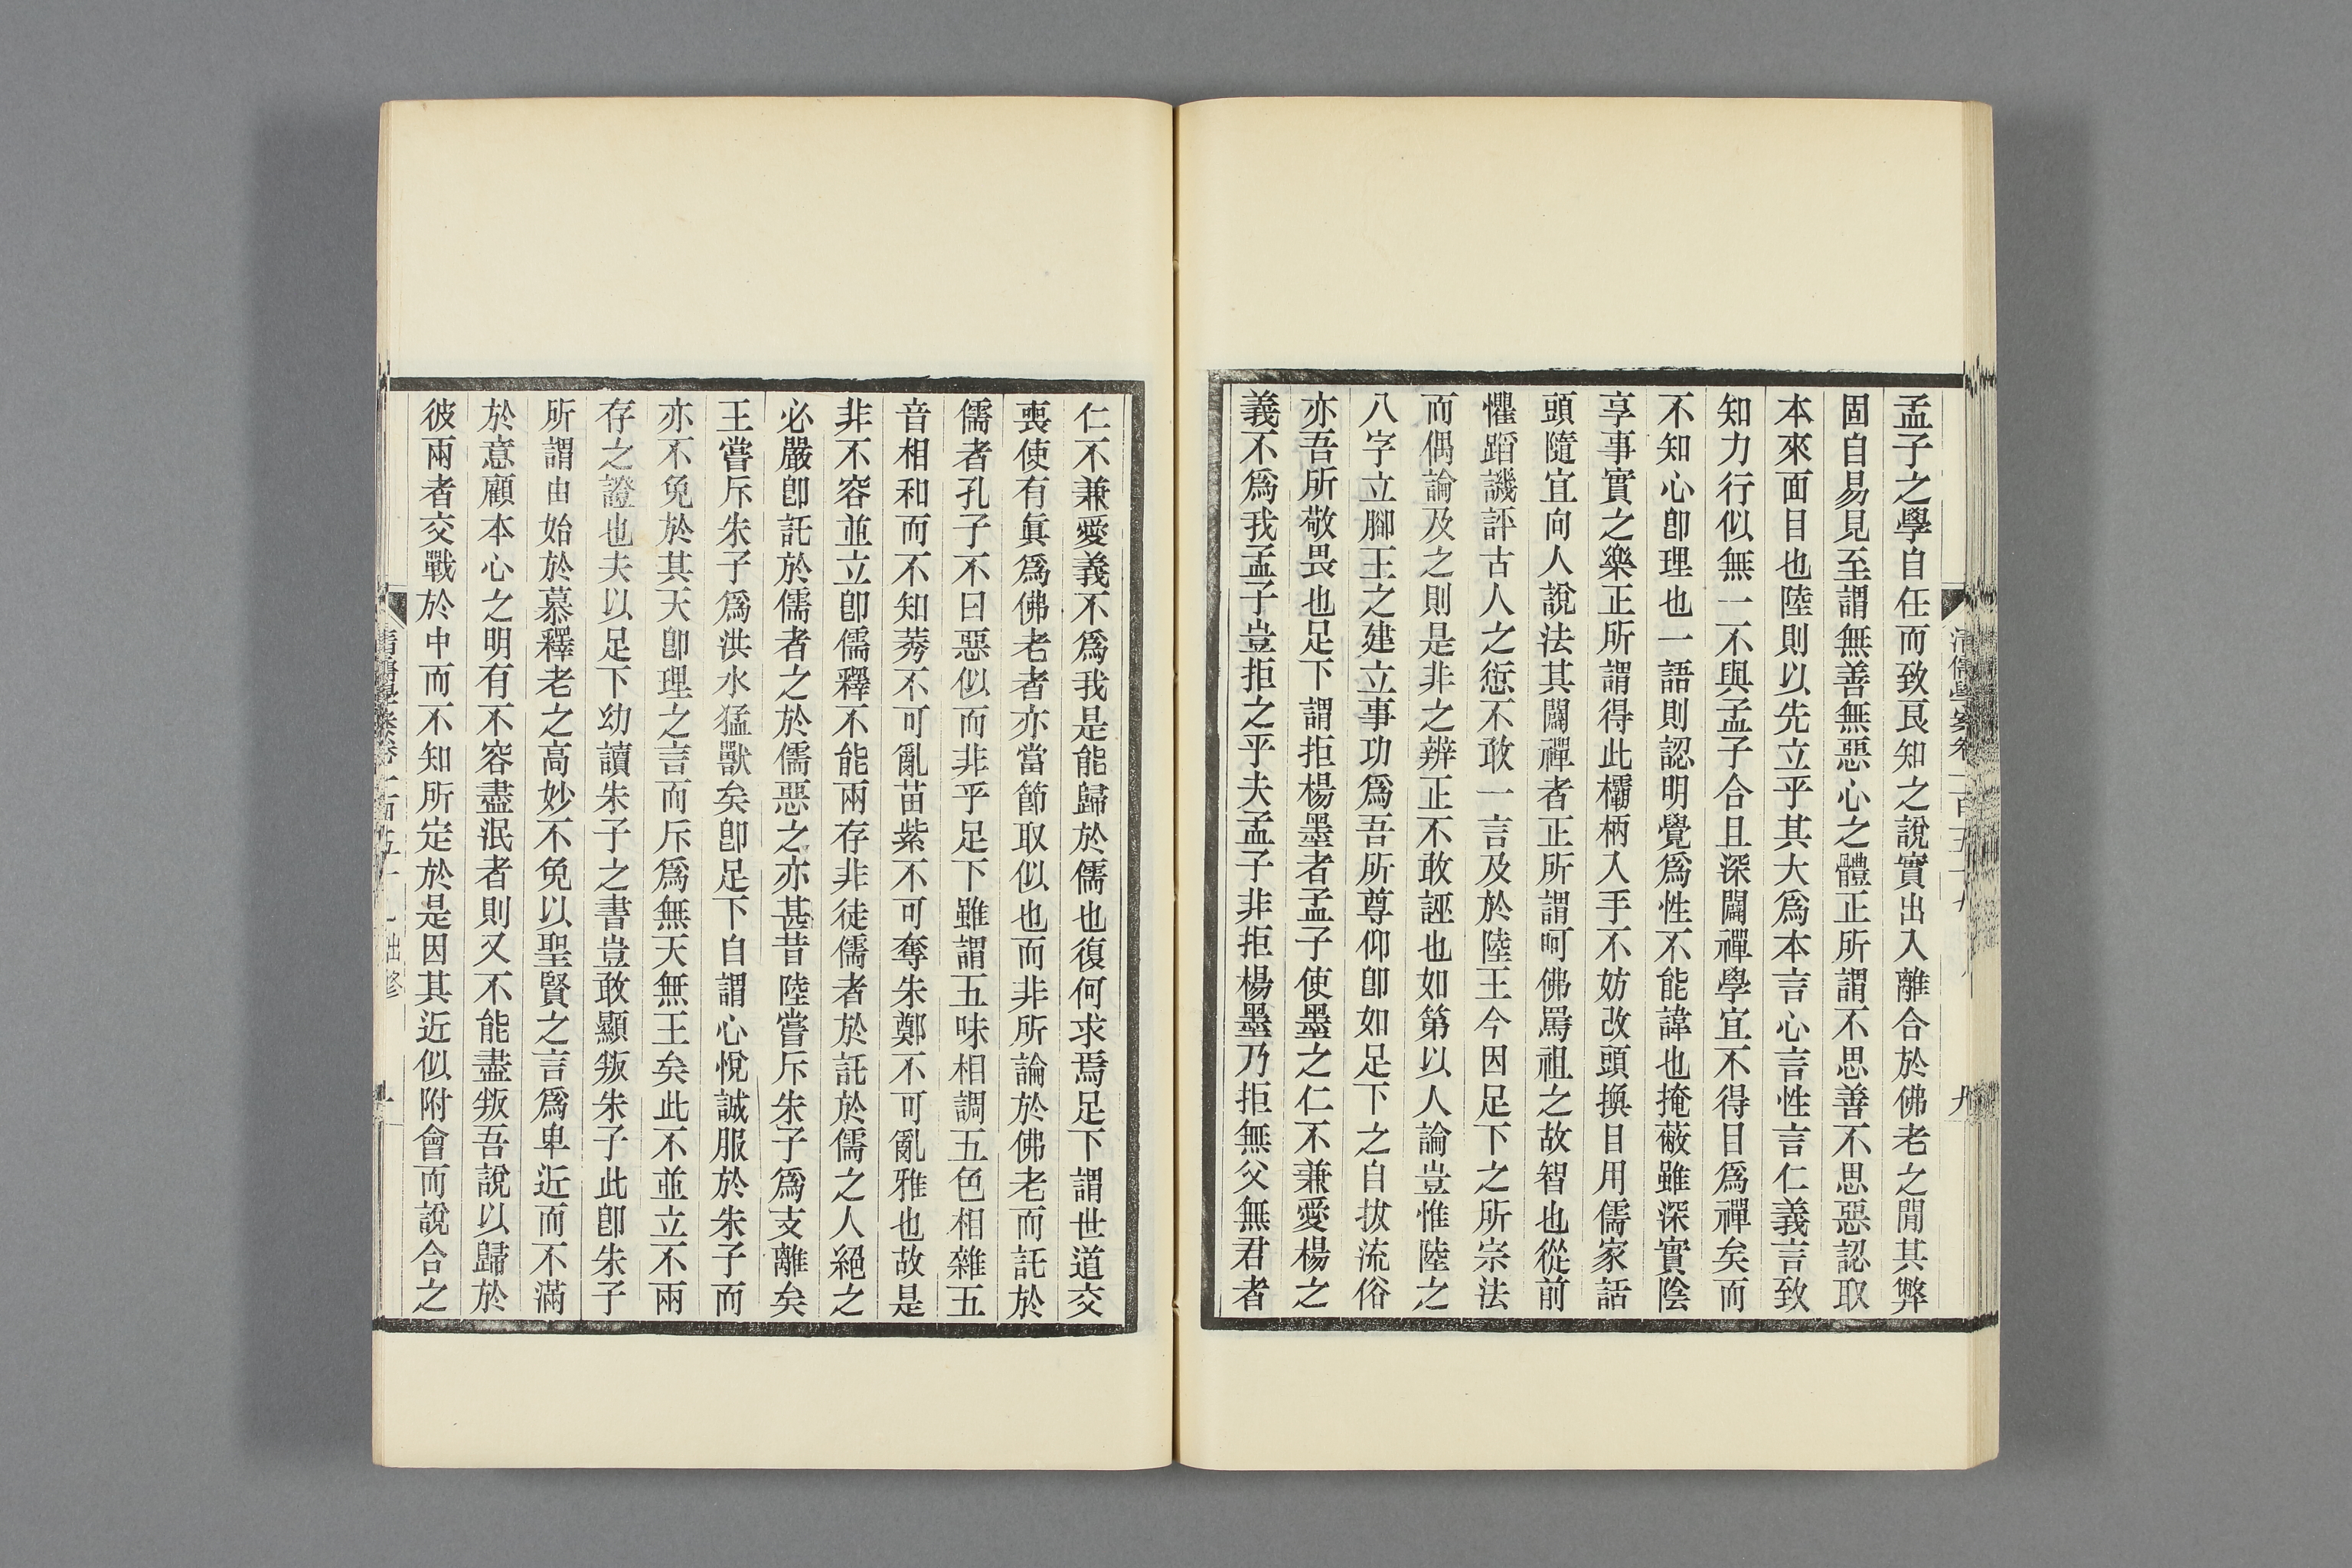 孟子之學自任而致良知之說實出入離合於佛老之閒其弊
固自易見至謂無善無惡心之體正所謂不思善不思惡認取
本來面目也陸則以先立乎其大爲本言心言性言仁義言致
知力行似無一不與孟子合且深闢禪學宜不得目爲禪矣而
不知心卽理也一語則認明覺爲性不能諱也掩蔽雖深實陰
享事實之樂正所謂得此欛柄入手不妨改頭換目用儒家話
頭隨宜向人說法其闢禪者正所謂呵佛罵祖之故智也從前
懼蹈譏評古人之愆不敢一言及於陸王今因足下之所宗法
而偶論及之則是非之辨正不敢誣也如第以人論豈惟陸之
八字立腳王之建立事功爲吾所尊仰卽如足下之自拔流俗
亦吾所敬畏也足下謂拒楊墨者孟子使墨之仁不兼愛楊之
義不爲我孟子豈拒之乎夫孟子非拒楊墨乃拒無父無君者
清儒學案卷二百五十九
仁不兼愛義不爲我是能歸於儒也復何求焉足下謂世道交
喪使有眞爲佛老者亦當節取似也而非所論於佛老而託於
儒者孔子不曰惡似而非乎足下雖謂五味相調五色相雜五
音相和而不知莠不可亂苗紫不可奪朱鄭不可亂雅也故是
非不容並立卽儒釋不能兩存非徒儒者於託於儒之人絕之
必嚴卽託於儒者之於儒惡之亦甚昔陸嘗斥朱子爲支離矣
王嘗斥朱子爲洪水猛獸矣卽足下自謂心悅誠服於朱子而
亦不免於其天卽理之言而斥爲無天無王矣此不並立不兩
存之證也夫以足下幼讀朱子之書豈敢顯叛朱子此卽朱子
所謂由始於慕釋老之高妙不免以聖賢之言爲卑近而不滿
於意顧本心之明有不容盡泯者則又不能盡叛吾說以歸於
彼兩者交戰於中而不知所定於是因其近似附會而說合之